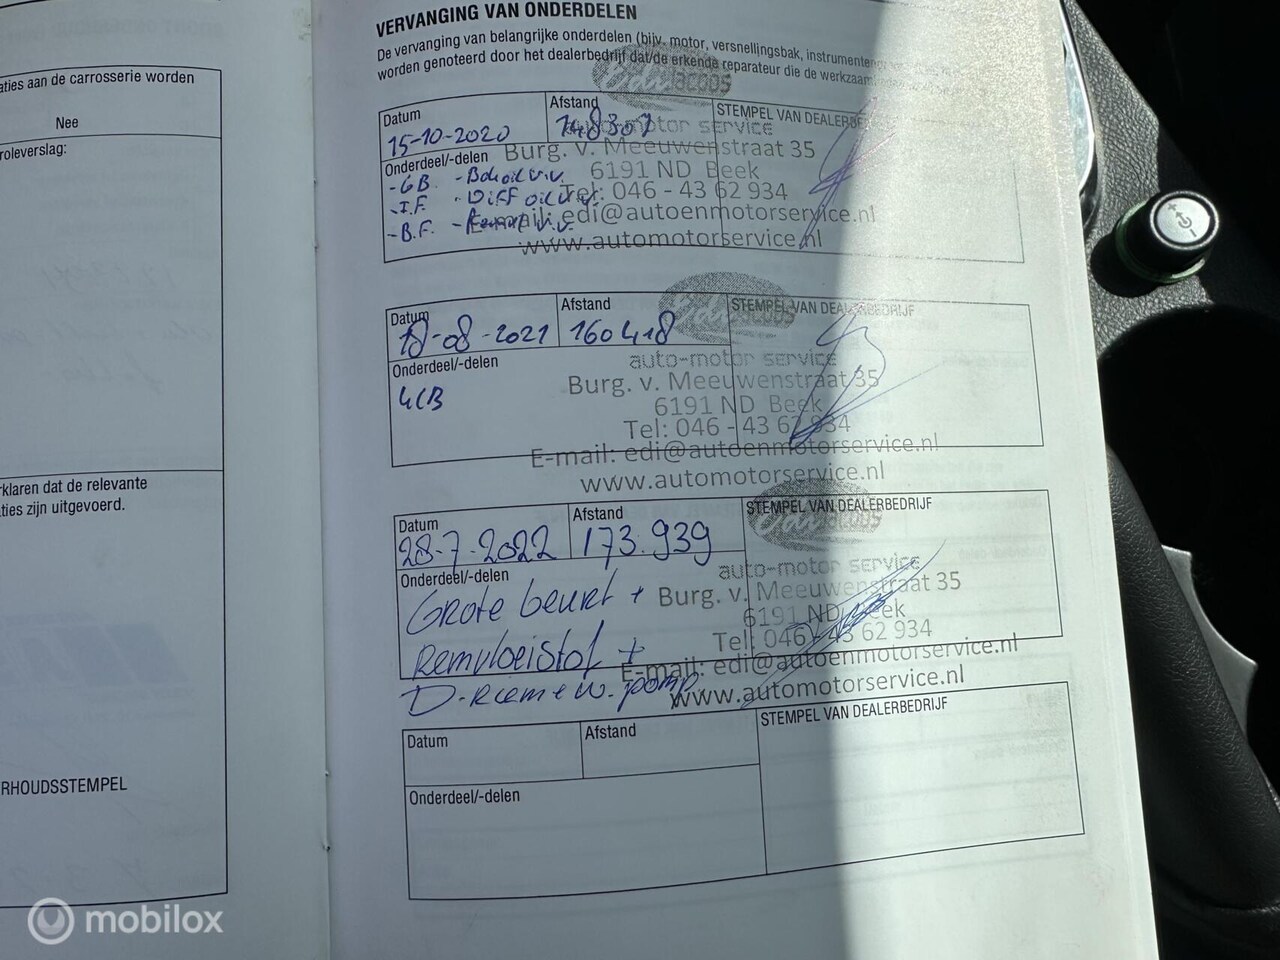 aties aan de carrosserie worden
Nee
roleverslag:
rklaren dat de relevante
ties zijn uitgevoerd.
RHOUDSSTEMPEL
VERVANGING VAN ONDERDELEN
De vervanging van belangrijke onderdelen (bijv. motor, versnellingsbak, instrumenten
worden genoteerd door het dealerbedrijf dat/de erkende reparateur die de werkzaam
Edi Jacobs
Datum
15-10-2020
Afstand
148307
STEMPEL VAN DEALERBEDRIJF
Onderdeel/-delen
- GB.
- I.F.
- Diff oil v.v.
- B.F.
auto-motor service
Burg. v. Meeuwenstraat 35
6191 ND Beek
Tel: 046 - 43 62 934
E-mail: edi@autoenmotorservice.nl
www.automotorservice.nl
Datum
18-08-2021
Afstand
160418
STEMPEL VAN DEALERBEDRIJF
Onderdeel/-delen
Edi Jacobs
auto-motor service
Burg. v. Meeuwenstraat 35
6191 ND Beek
Tel: 046 - 43 62 934
E-mail: edi@autoenmotorservice.nl
www.automotorservice.nl
Datum
28-7-2022
Afstand
173.939
STEMPEL VAN DEALERBEDRIJF
Onderdeel/-delen
Grote beurt +
Remvloeistof +
D-riem + w. pomp.
Edi Jacobs
auto-motor service
Burg. v. Meeuwenstraat 35
6191 ND Beek
Tel: 046 - 43 62 934
E-mail: edi@autoenmotorservice.nl
www.automotorservice.nl
Datum
Afstand
STEMPEL VAN DEALERBEDRIJF
Onderdeel/-delen
mobilox